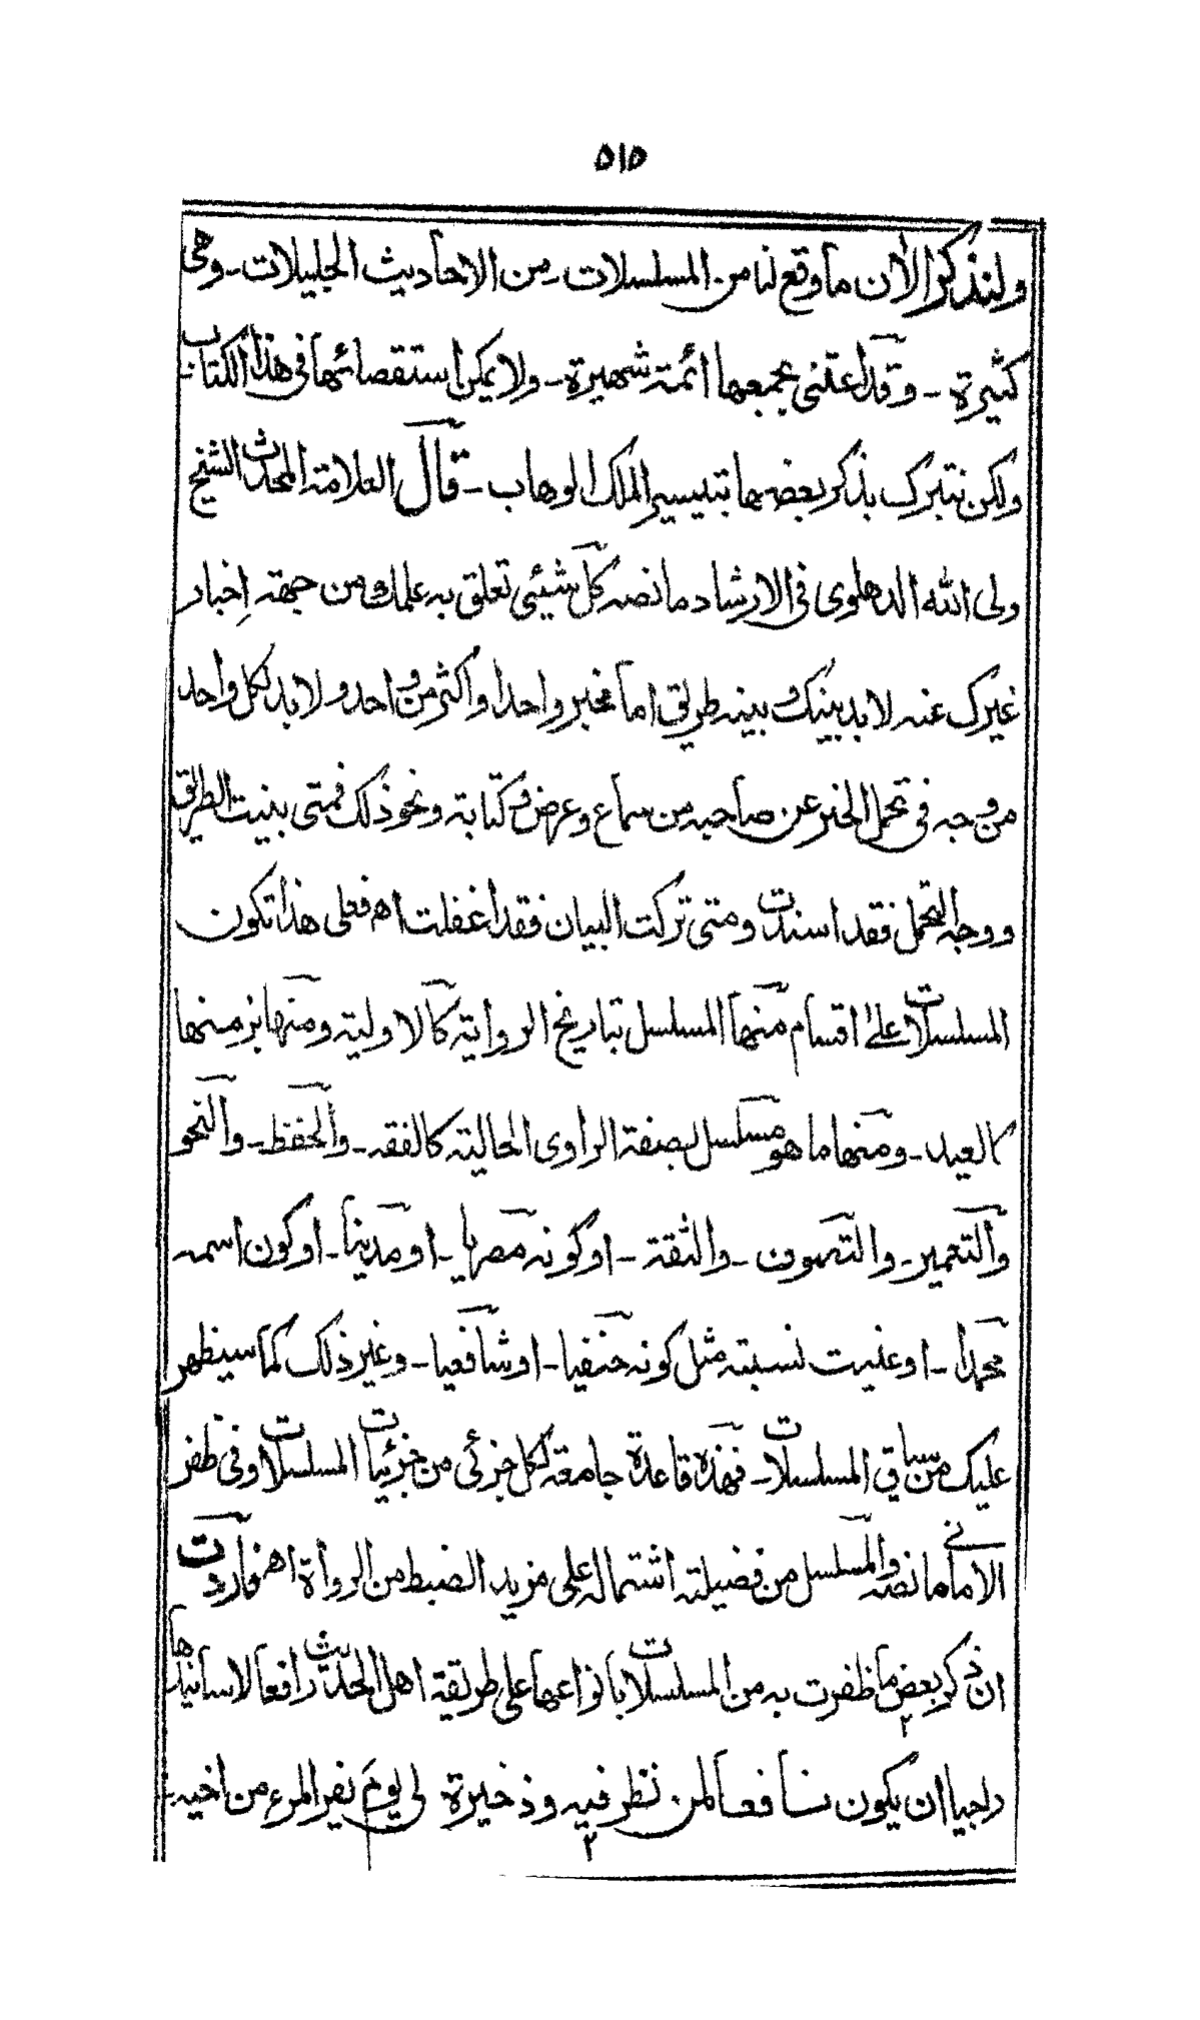 ٥١٥
ولنذكر الأن ما وقع لنا من المسلسلات ـ من الاحاديث الجليلات ـ وهى
كثيرة ـ وقد اعتنى بجمعها ائمة شهيرة ـ ولا يمكن استقصائها فى هذا الكتاب
ولكن نتبرك بذكر بعضها بتيسير الملك الوهاب ـ قال العلامة المحدث الشيخ
ولى الله الدهلوى فى الارشاد ما نصه كل شيئى تعلق به علمك من جهة إخبار
غيرك عنه لا بد بينك و بينه طريق اما مخبر واحدا واكثر من واحد ولا بد لكل واحد
من وجه فى تحمل الخبر عن صاحبه من سماع وعرض وكتابة ونحو ذلك فمتى بنيت الطريق
ووجه التحمل فقد اسندت ومتى تركت البيان فقد اغفلت اه فعلى هذا تكون
المسلسلات على اقسام منها المسلسل بتاريخ الرواية كالاولية ومنها بزمنها
كالعيد ـ ومنها ما هو مسلسل بصفة الراوى الحالية كالفقه ـ والحفظ ـ والنحو
والتعمير ـ والتصوف ـ والثقة ـ او كونه مصريا ـ او مدينا ـ او كون اسمه
محمدا ـ او عنيت نسبته مثل كونه حنفيا ـ او شافعيا ـ وغير ذلك كما سيظهر
عليك من سياق المسلسلات ـ فهذه قاعدة جامعة لكل جزئى من جزئيات المسلسلات وفى ظفر
الامانى ما نصه والمسلسل من فضيلته اشتماله على مزيد الضبط من الرواة اه فاردت
ان ذكر بعض ما ظفرت به من المسلسلات بانواعها على طريقة اهل الحديث رافعا لاسانيدها
راجيا ان يكون نافعا لمن نظر فيه وذخيرة لى يوم يفر المرء من اخيه